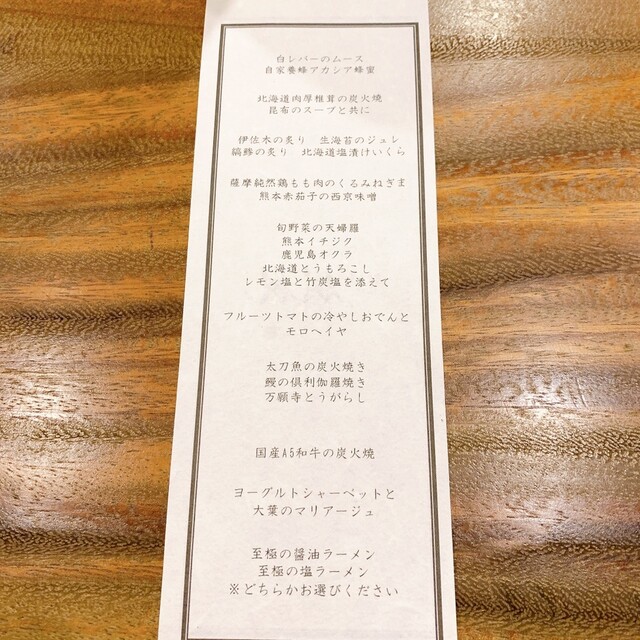 白レバーのムース
自家養蜂アカシア蜂蜜
北海道肉厚椎茸の炭火焼
昆布のスープと共に
伊佐木の炙り　生海苔のジュレ
縞鯵の炙り　北海道塩漬けいくら
薩摩純然鶏もも肉のくるみねぎま
熊本赤茄子の西京味噌
旬野菜の天婦羅
熊本イチジク
鹿児島オクラ
北海道とうもろこし
レモン塩と竹炭塩を添えて
フルーツトマトの冷やしおでんと
モロヘイヤ
太刀魚の炭火焼き
鰻の倶利伽羅焼き
万願寺とうがらし
国産A5和牛の炭火焼
ヨーグルトシャーベットと
大葉のマリアージュ
至極の醤油ラーメン
至極の塩ラーメン
※どちらかお選びください